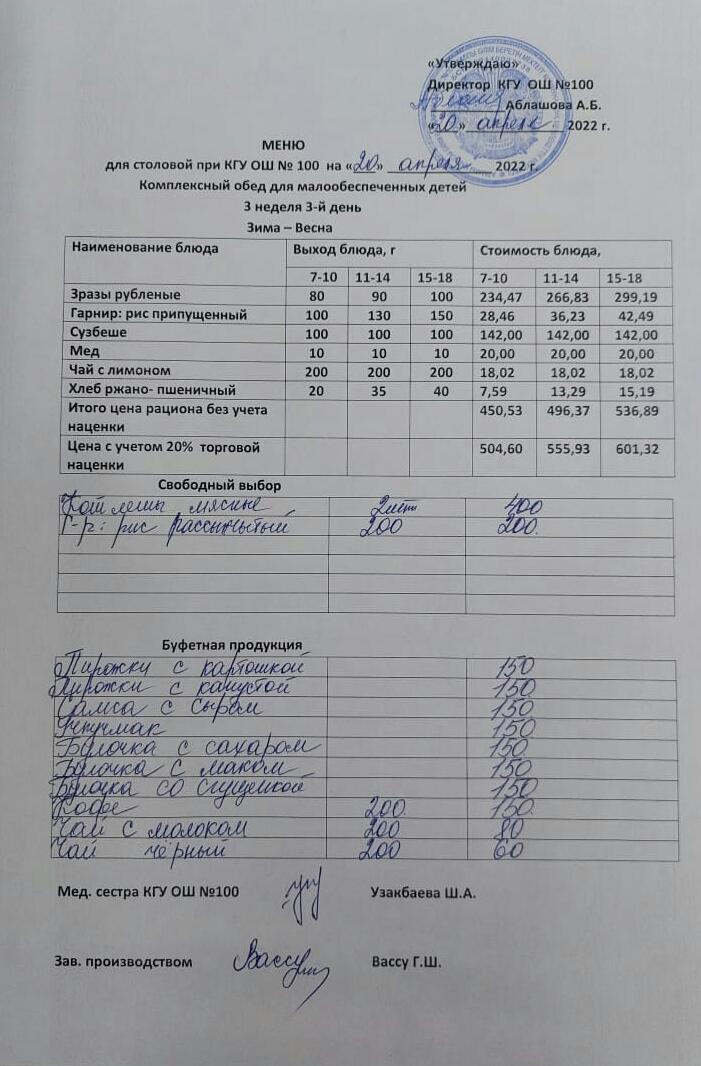 «Утверждаю»
Директор КГУ ОШ №100
Аблашова А.Б.
«20» апреля 2022 г.
МЕНЮ
для столовой при КГУ ОШ № 100 на «20» апреля 2022 г.
Комплексный обед для малообеспеченных детей
3 неделя 3-й день
Зима – Весна
Наименование блюда Выход блюда, г Стоимость блюда,
7-10 11-14 15-18 7-10 11-14 15-18
Зразы рубленые 80 90 100 234,47 266,83 299,19
Гарнир: рис припущенный 100 130 150 28,46 36,23 42,49
Сузбеше 100 100 100 142,00 142,00 142,00
Мед 10 10 10 20,00 20,00 20,00
Чай с лимоном 200 200 200 18,02 18,02 18,02
Хлеб ржано- пшеничный 20 35 40 7,59 13,29 15,19
Итого цена рациона без учета 450,53 496,37 536,89
наценки
Цена с учетом 20% торговой 504,60 555,93 601,32
наценки
Свободный выбор
Котлеты мясные 400
Г-р: рис рассыпчатый 200 200
Буфетная продукция
Пирожки с картошкой 150
Пирожки с капустой 150
Самса с сыром 150
Учпучмак 150
Булочка с сахаром 150
Булочка с маком 150
Булочка со сгущенкой 150
Кофе 200 150
Чай с молоком 200 80
Чай чёрный 200 60
Мед. сестра КГУ ОШ №100 Узакбаева Ш.А.
Зав. производством Вассу Вассу Г.Ш.